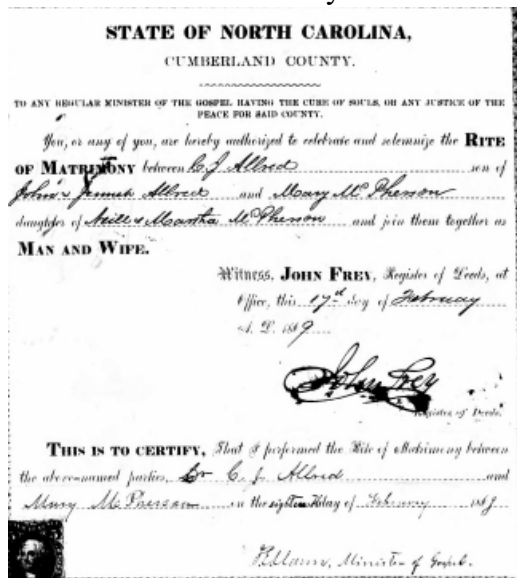 STATE OF NORTH CAROLINA,
CUMBERLAND COUNTY.
TO ANY REGULAR MINISTER OF THE GOSPEL HAVING THE CURE OF SOULS, OR ANY JUSTICE OF THE
PEACE FOR SAID COUNTY.
You, or any of you, are hereby authorized to celebrate and solemnize the RITE
OF MATRIMONY between C. J. Allred son of
John & Allred and Mary McPherson
daughter of Neill & Martha McPherson and join them together as
MAN AND WIFE.
Witness, JOHN FREY, Register of Deeds, at
Office, this 17th day of February
A. D. 1869.
John Frey
Register of Deeds.
THIS IS TO CERTIFY, That I performed the Rite of Matrimony between
the above-named parties, C. J. Allred and
Mary McPherson on the day of February 1869
Minister of Gospel.